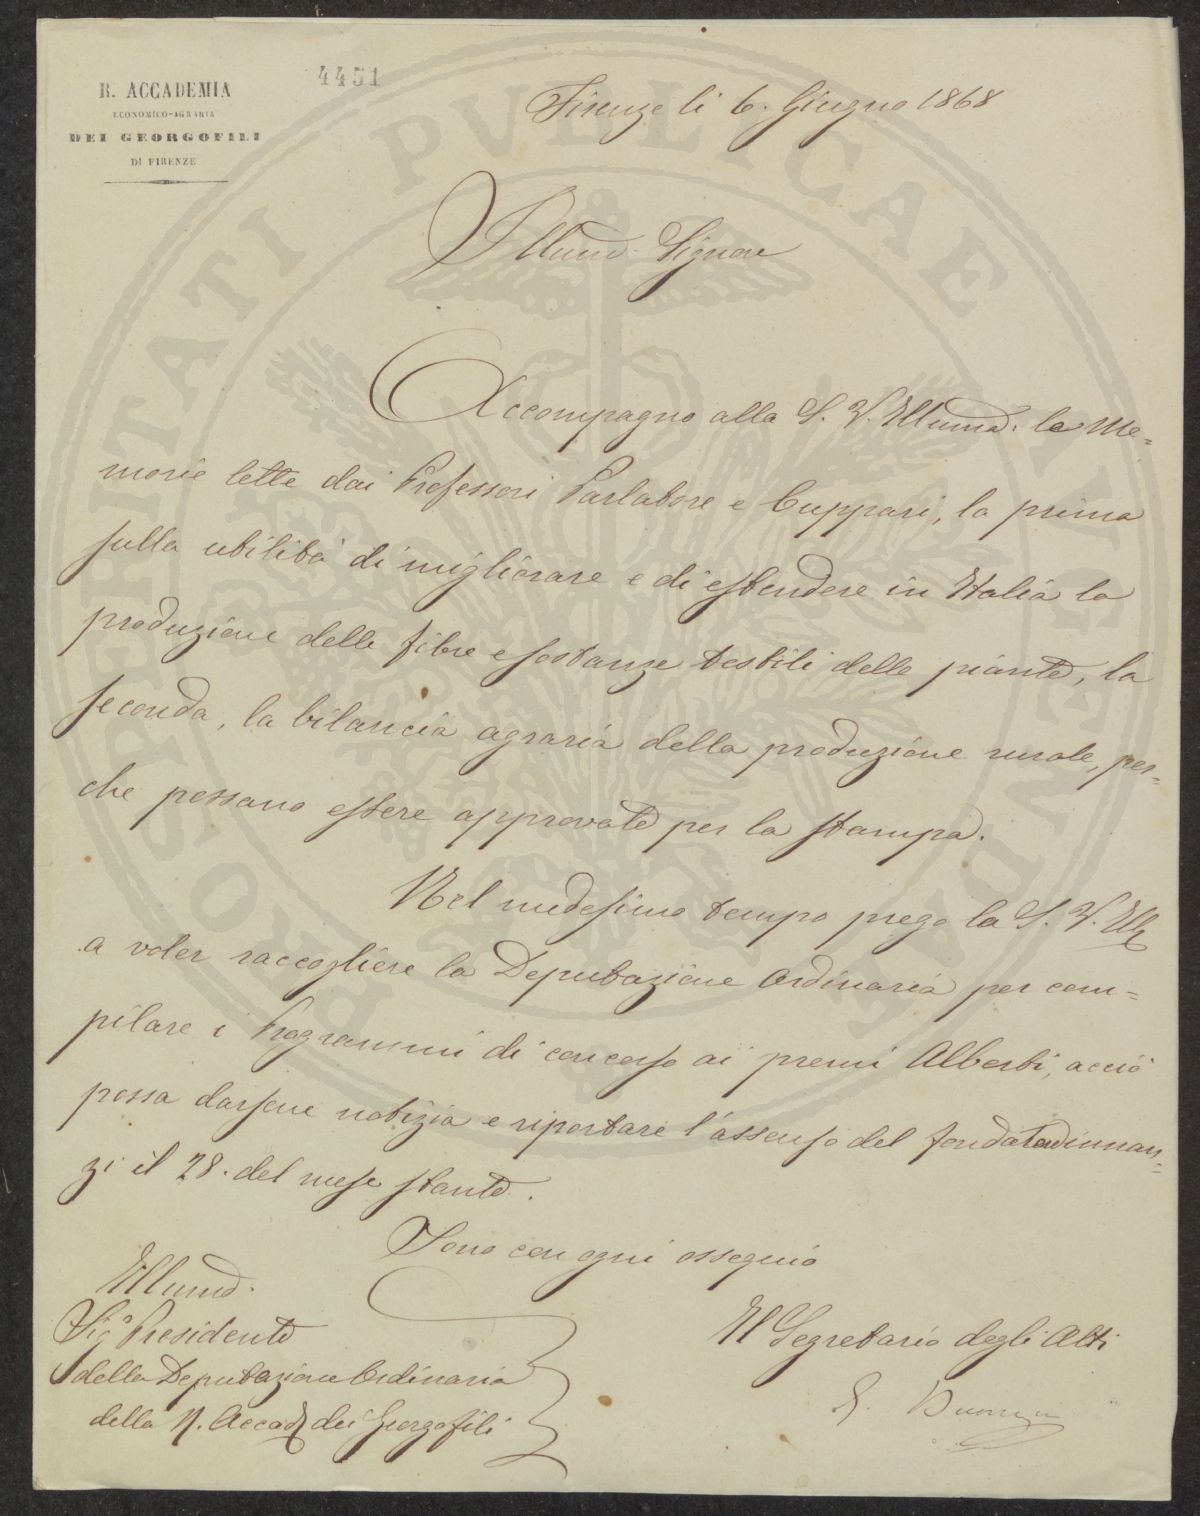 R. ACCADEMIA
ECONOMICO-AGRARIA
DEI GEORGOFILI
DI FIRENZE
4451
Firenze li 6. Giugno 1868
Illumo. Signore
Accompagno alla S. V. Illuma. le Me=
morie lette dai Professori Parlatore e Cuppari, la prima
sulla utilità di migliorare e di estendere in Italia la
produzione delle fibre e sostanze testili delle piante, la
seconda, la bilancia agraria della produzione rurale, per=
che possano essere approvate per la stampa.
Nel medesimo tempo prego la S. V. Illa
a voler raccogliere la Deputazione Ordinaria per com=
pilare i Programmi di concorso ai premi Alberti, acciò
possa darsene notizia e riportare l'assenso del fondatore dinnan=
zi il 28. del mese stante.
Sono con ogni ossequio
Illumo.
Sigo. Presidente
della Deputazione Ordinaria
della R. Accada dei Georgofili
Il Segretario degli Atti
PROSPERITATI PVBLICAE AVGENDAE